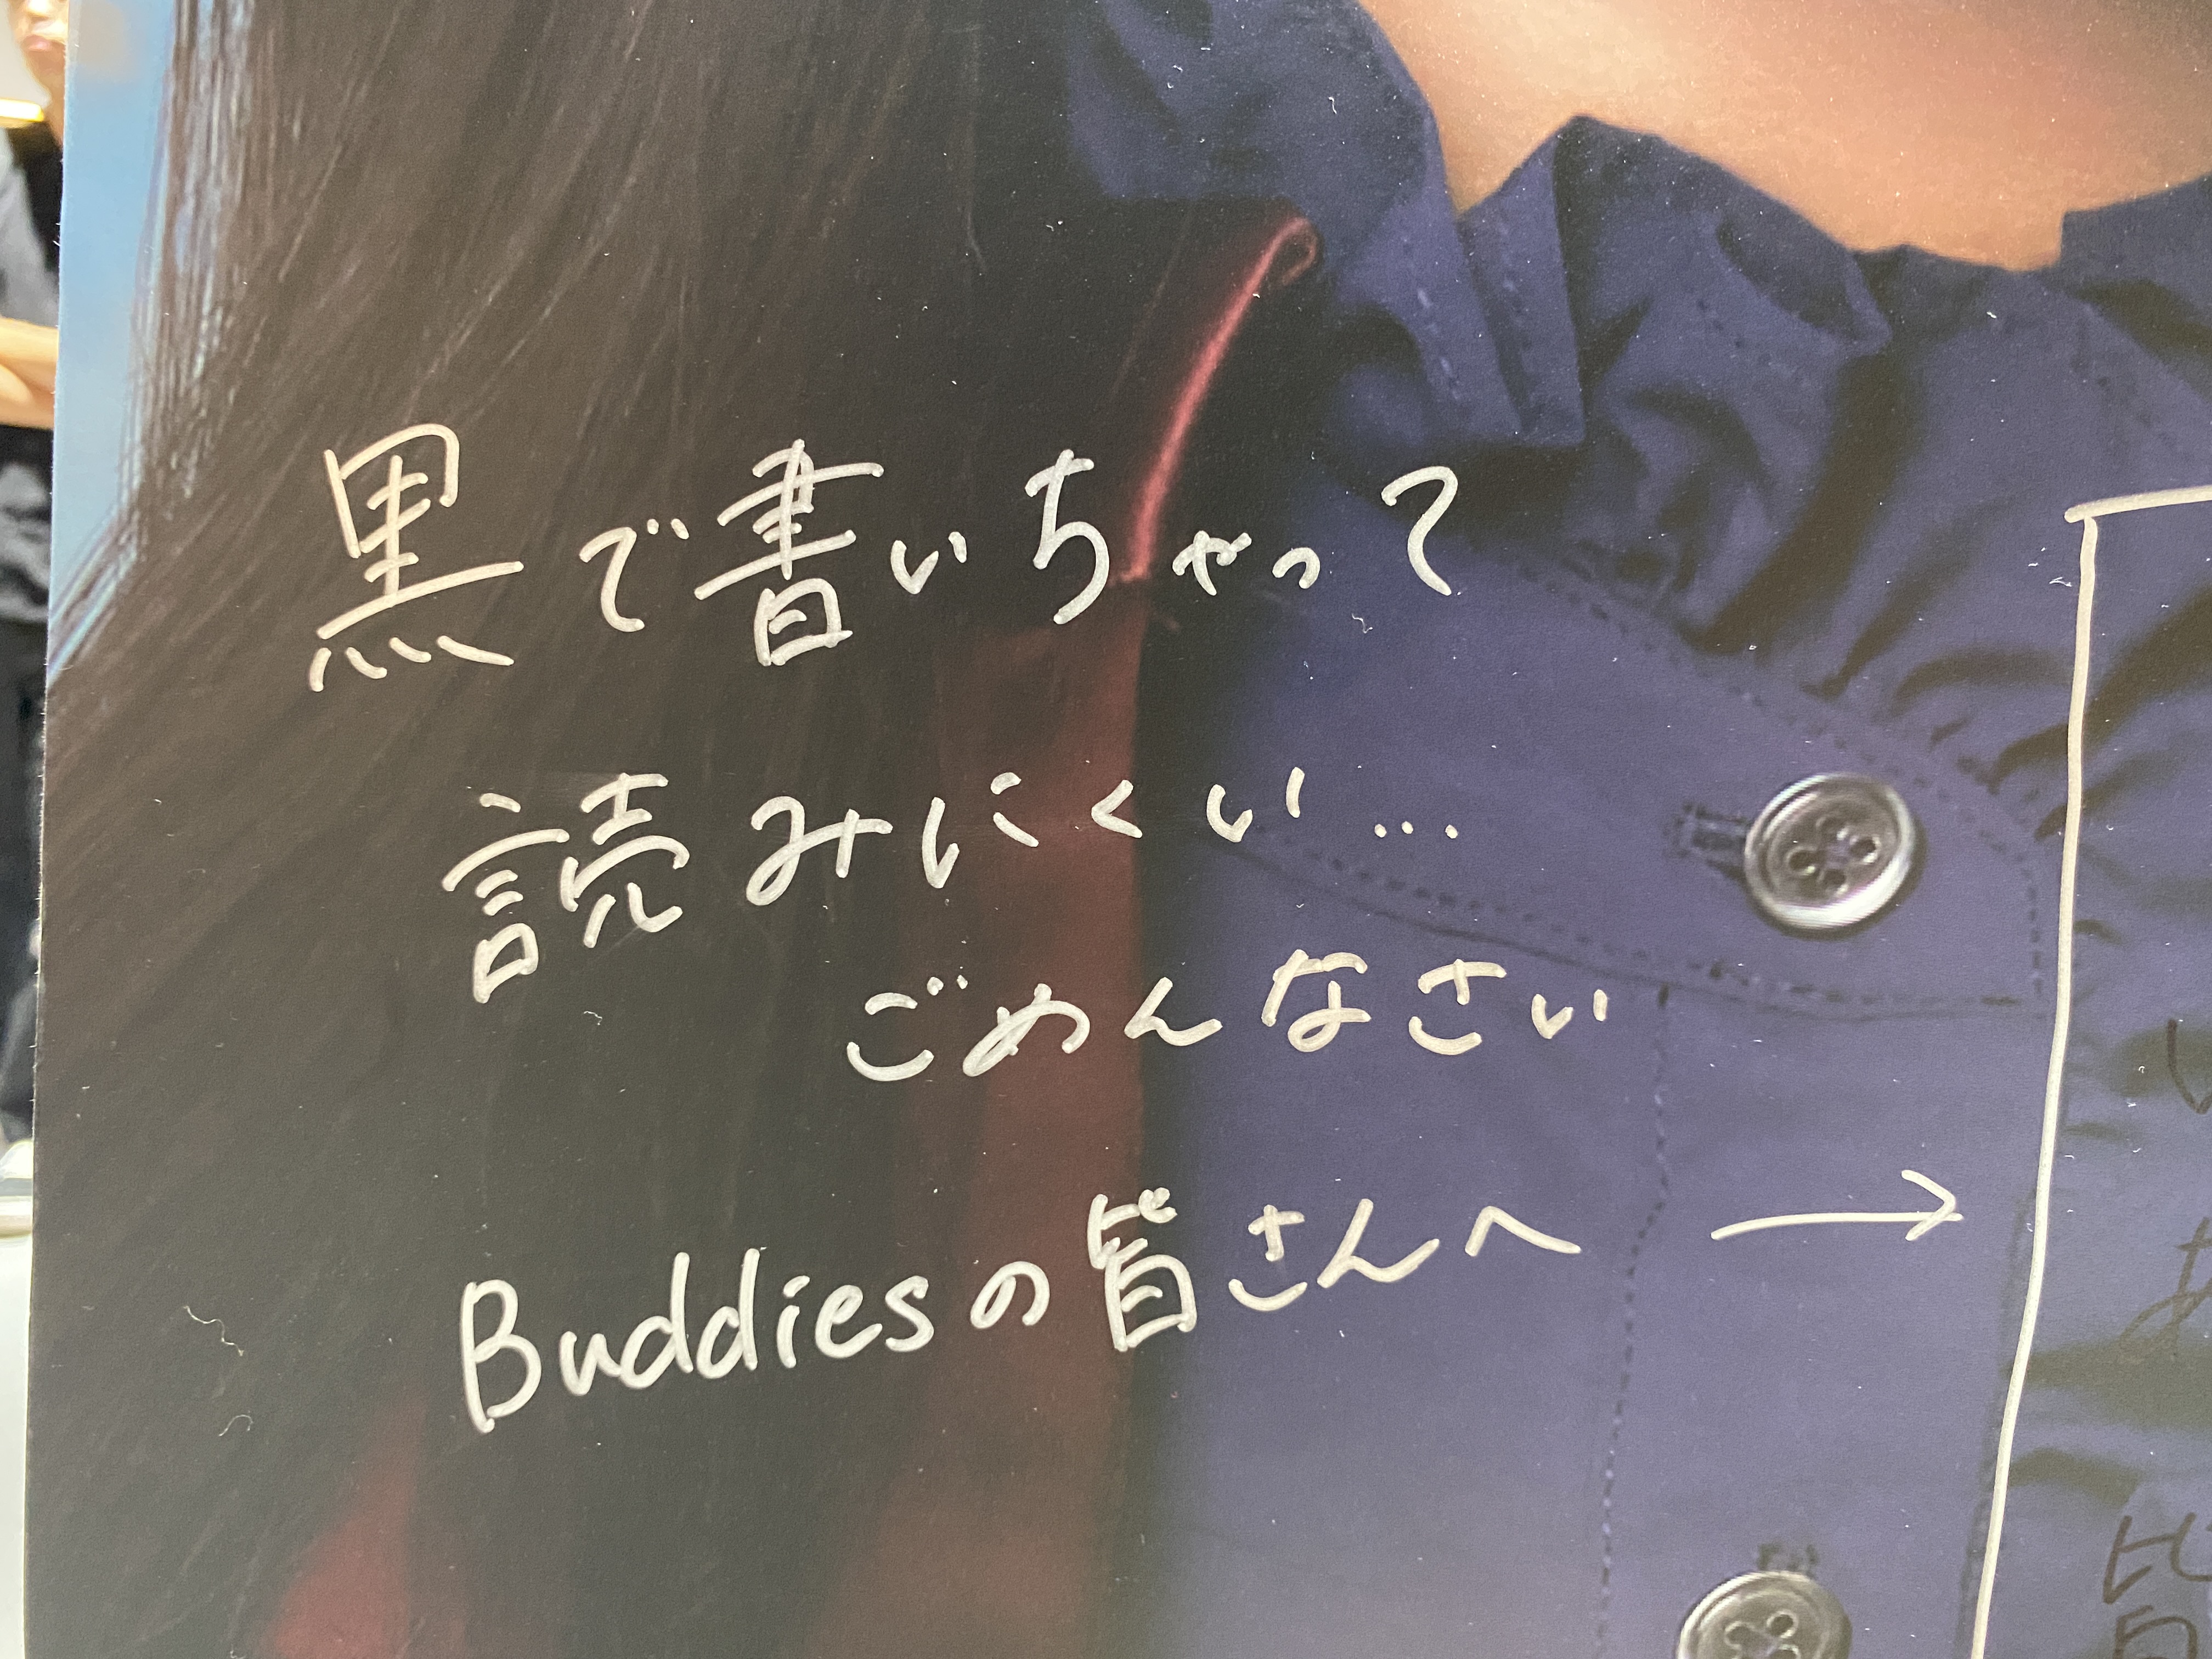 黒で書いちゃって
読みにくい…
ごめんなさい
Buddiesの皆さんへ →